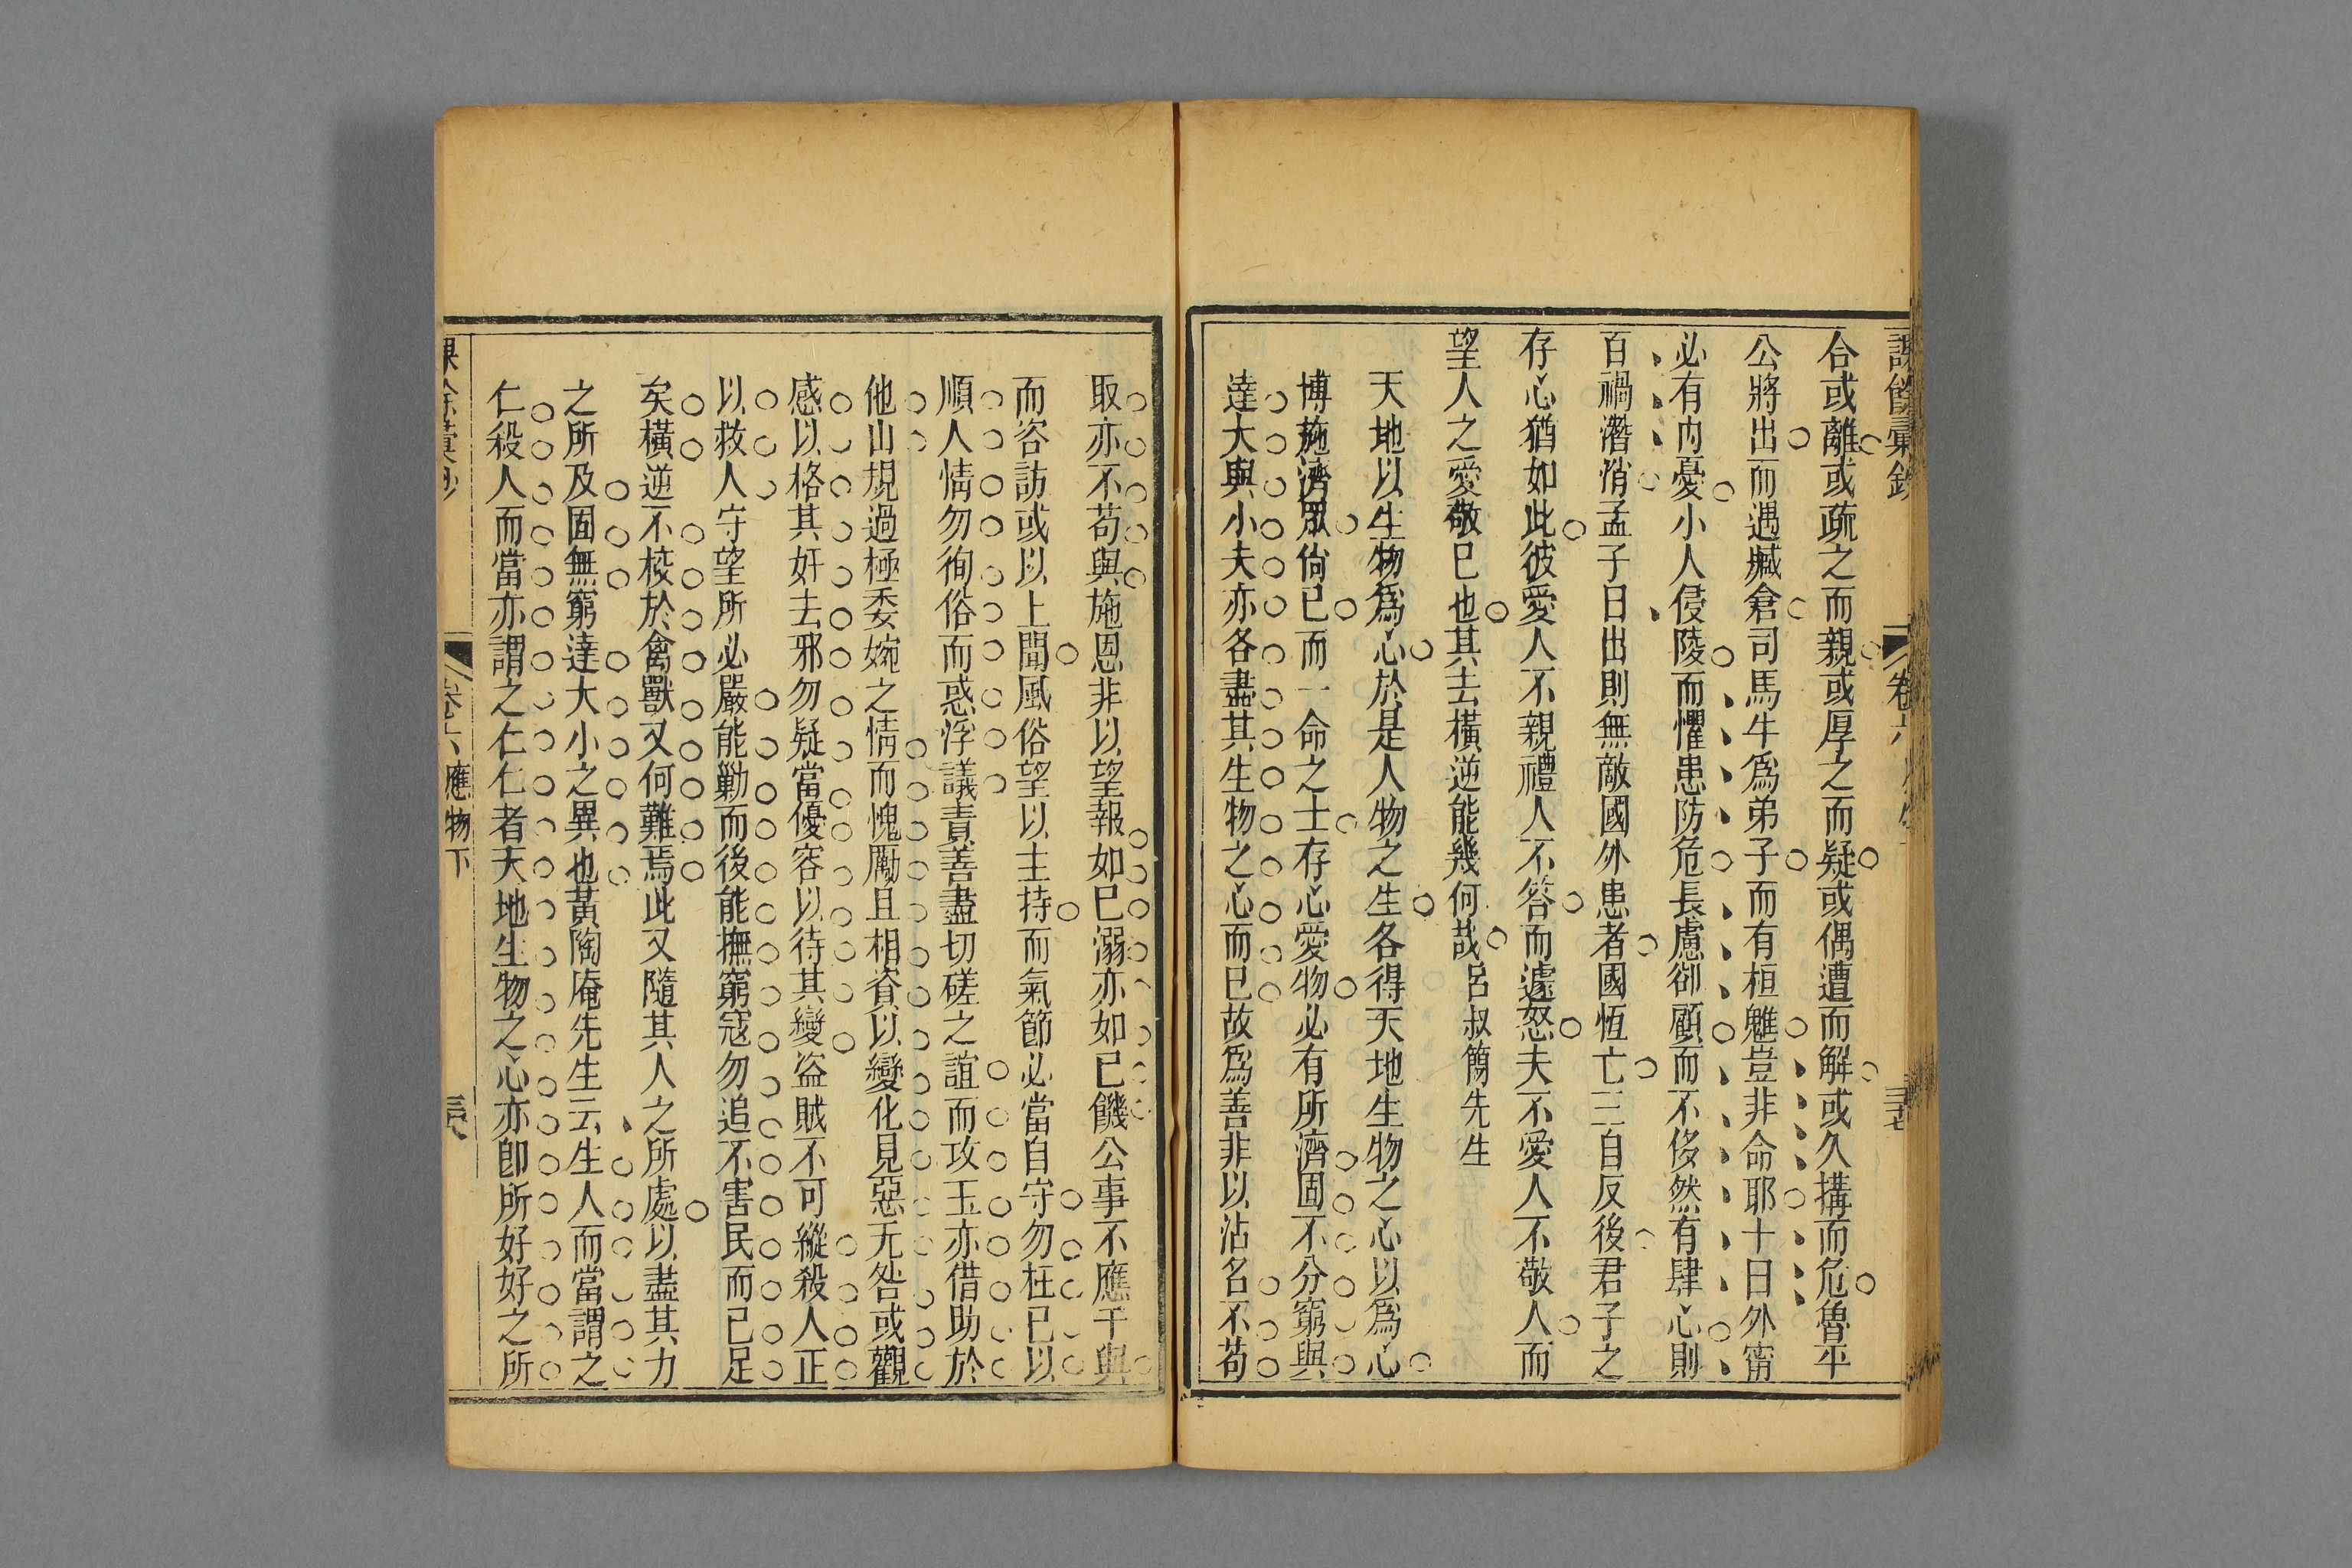 課餘彙鈔
卷六
三十七
合或離或疏之而親或厚之而疑或偶遭而解或久搆而危魯平
公將出而遇臧倉司馬牛爲弟子而有桓魋豈非命耶十日外甯
必有内憂小人侵陵而懼患防危長慮卻顧而不侈然有肆心則
百禍潛消孟子曰出則無敵國外患者國恆亡三自反後君子之
存心猶如此彼愛人不親禮人不答而遽怒夫不愛人不敬人而
望人之愛敬巳也其去橫逆能幾何哉呂叔簡先生
天地以生物爲心於是人物之生各得天地生物之心以爲心
博施濟眾尙已而一命之士存心愛物必有所濟固不分窮與
達大與小夫亦各盡其生物之心而巳故爲善非以沽名不苟
取亦不苟與施恩非以望報如巳溺亦如已饑公事不應干與
而咨訪或以上聞風俗望以主持而氣節必當自守勿枉巳以
順人情勿徇俗而惑浮議責善盡切磋之誼而攻玉亦借助於
他山規過極委婉之情而愧勵且相資以變化見惡无咎或觀
感以格其奸去邪勿疑當優容以待其變盜賊不可縱殺人正
以救人守望所必嚴能勦而後能撫窮寇勿追不害民而已足
矣橫逆不校於禽獸又何難焉此又隨其人之所處以盡其力
之所及固無窮達大小之異也黃陶庵先生云生人而當謂之
仁殺人而當亦謂之仁仁者天地生物之心亦卽所好好之所
課餘彙鈔
卷六
應物下